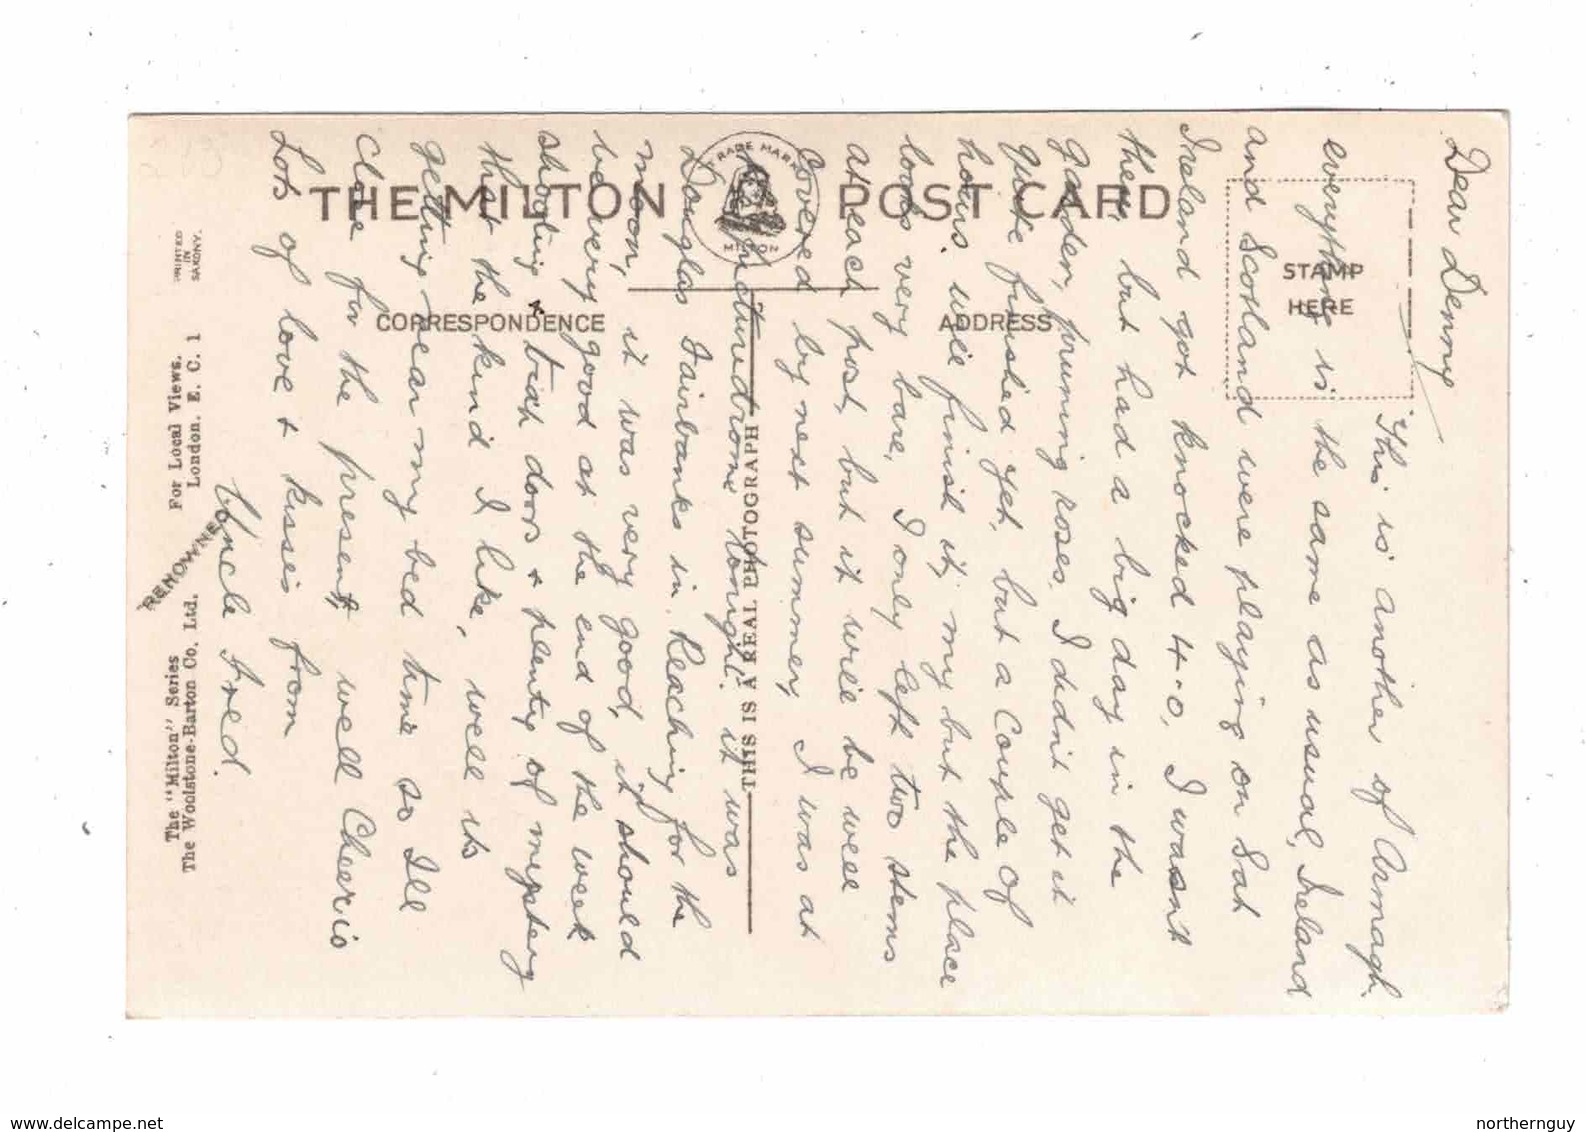 THE MILTON POST CARD
TRADE MARK
MILTON
CORRESPONDENCE
ADDRESS
STAMP
HERE
THIS IS A REAL PHOTOGRAPH
Dear Denny
This is another of Armagh.
everything is the same as usual, Ireland
and Scotland were playing on Sat
Ireland got knocked 4-0, I wasn't
there, but had a big day in the
garden, pruning roses. I didn't get it
quite finished yet, but a couple of
hours will finish it, my but the place
looks very bare, I only left two stems
at each post, but it will be well
covered by next summer, I was at
the picturedrome tonight. it was
Douglas Fairbanks in Reaching for the
moon, it was very good, it should
be very good at the end of the week
shooting & trap doors & plenty of mystery
that the kind I like, well its
getting near my bed time so Ill
close for the present, well Cheerio
Lots of love & kisses from
Uncle Fred.
PRINTED
IN
SAXONY.
RENOWNED
For Local Views.
London. E. C. 1
The "Milton" Series
The Woolstone-Barton Co. Ltd.
www.delcampe.net
northernguy